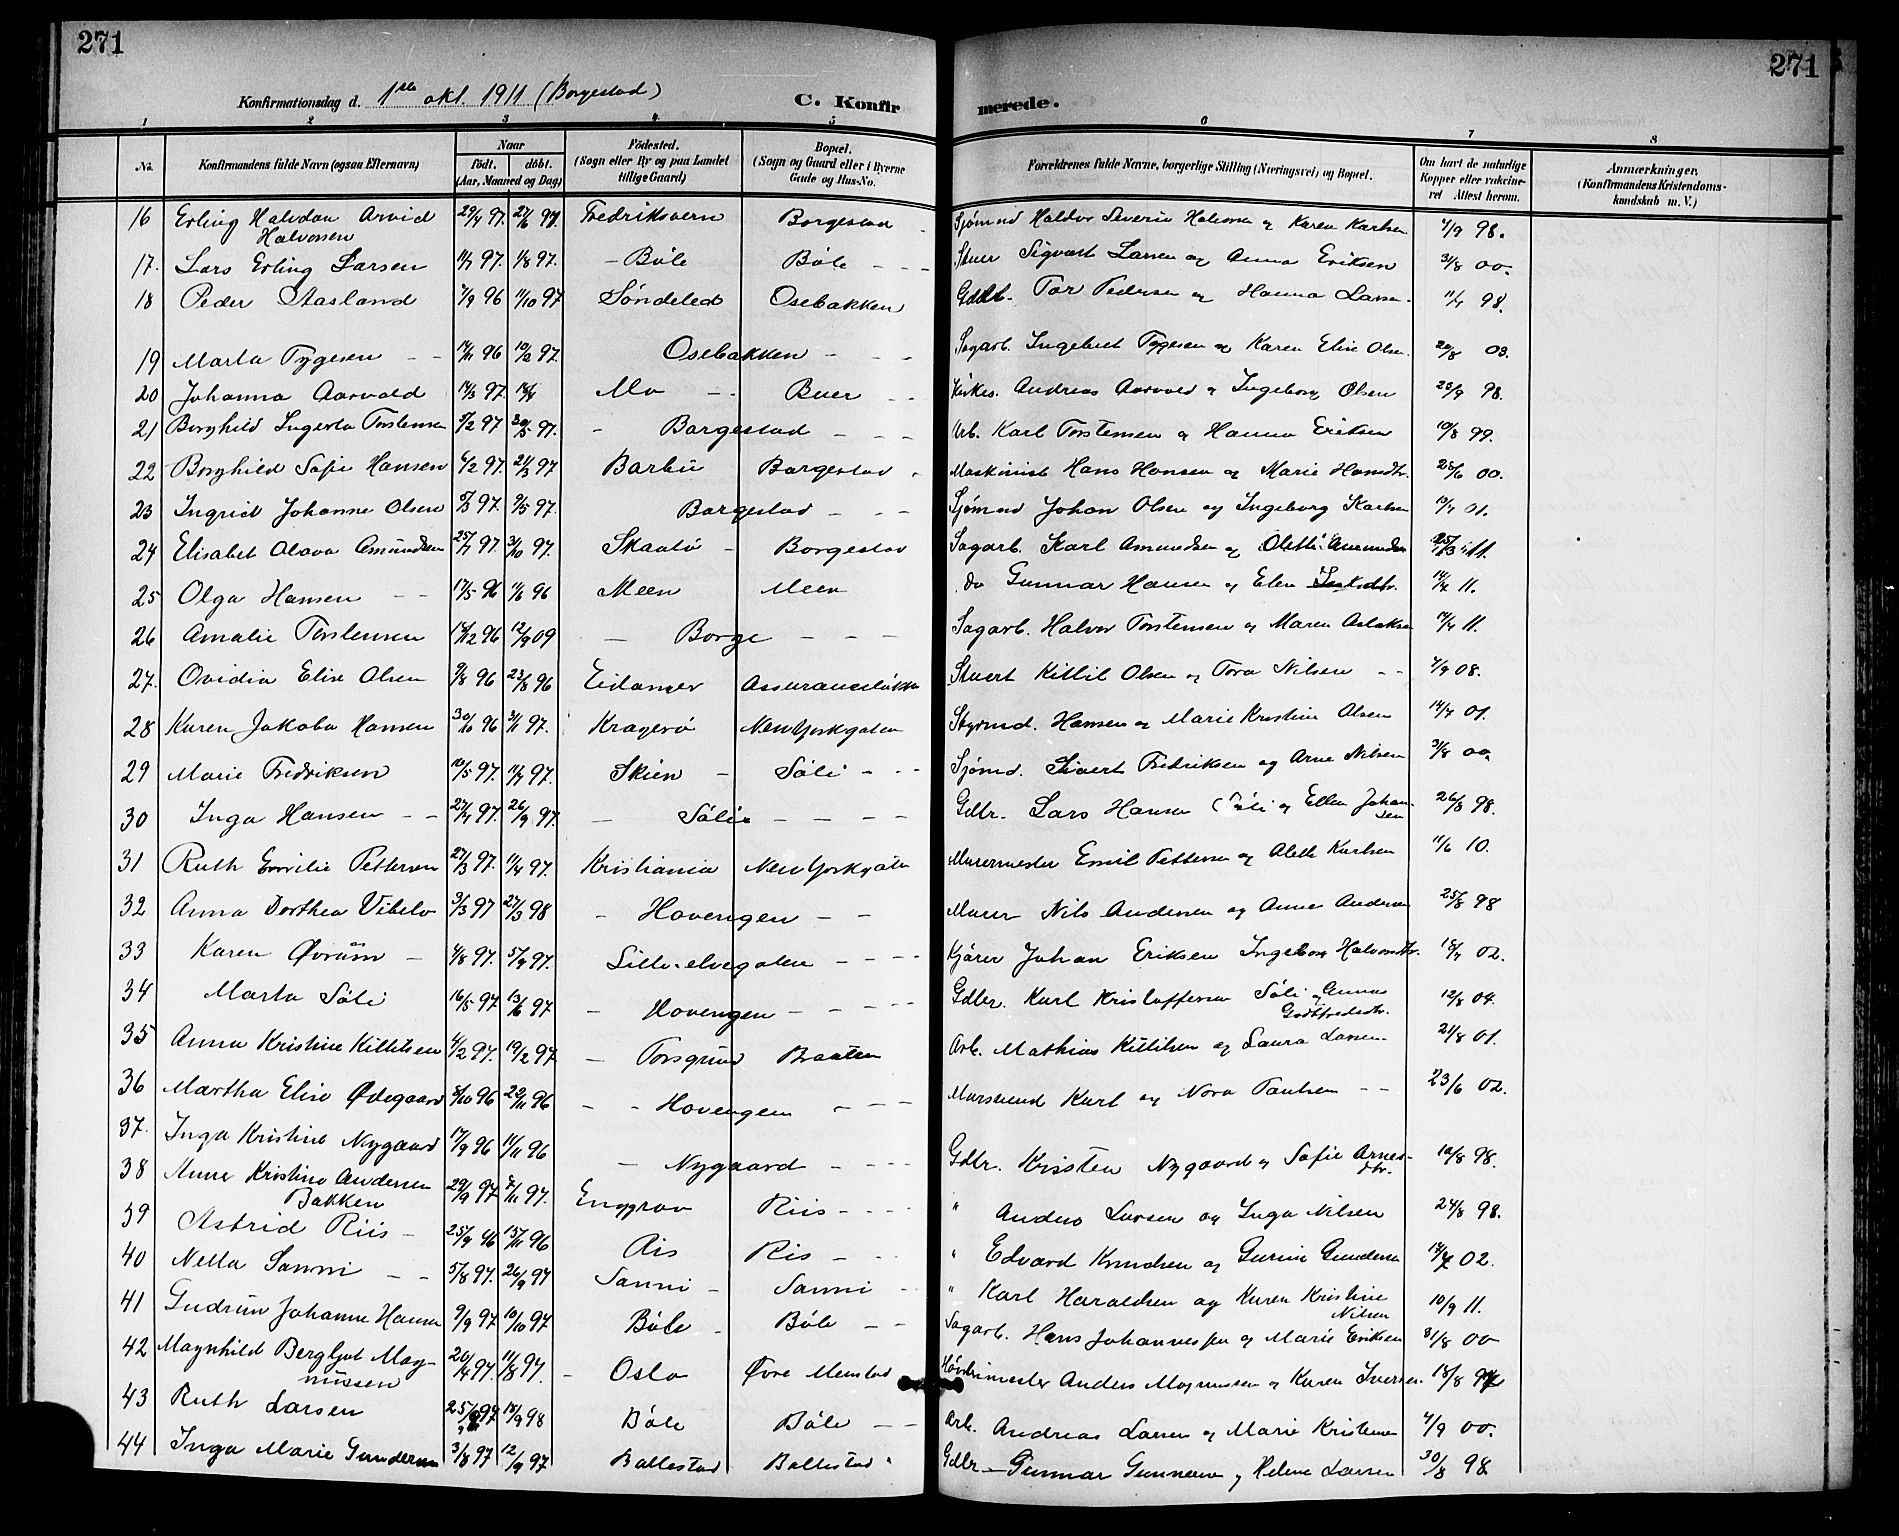 271
271
Konfirmationsdag d. 1ste okt. 1911 (Borgestad)
C. Konfirmerede.
1 2 3 4 5 6 7 8
No.
Konfirmandens fulde Navn (ogsaa Efternavn)
Naar
födt. döbt.
(Aar, Maaned og Dag)
Födested.
(Sogn eller By og paa Landet
tillige Gaard)
Bopæl.
(Sogn og Gaard eller i Byerne
Gade og Hus-No.
Forældrenes fulde Navne, borgerlige Stilling (Næringsvei) og Bopæl.
Om havt de naturlige
Kopper eller vaccine-
ret Attest herom.
Anmærkninger.
(Konfirmandens Kristendoms-
kundskab m. V.)
16 Erling Halvdan Arvid 29/4 97. 27/6 97. Fredriksvern Borgestad Sjömnd Haldor Severin Halvorsen og Karen Karlsen 4/9 98.
Halvorsen
17. Lars Erling Larsen 11/7 97. 1/8 97. – Böle Böle – – Stuer Sigvart Larsen og Anna Eriksen 31/8 00.
18 Peder Aasland 7/9 96 11/10 97 Söndeled Osebakken Gdbl. Tor Pedersen og Hanna Larsen 11/7 98.
19 Marta Tygesen – – 14/11 96 10/2 97. Osebakken – – – Sagarb. Ingebret Tygesen og Karen Elise Olsen. 20/8 03.
20 Johanna Aarvold 14/3 97. 18/4 Mo – Buer – Kirkes. Andreas Aarvold og Ingeborg Olsen 23/9 98.
21 Borghild Ingerta Torstensen 5/2 97 30/5 97. – Borgestad – – – Arb. Karl Torstensen og Hanna Eriksen 10/8 99.
22 Borghild Sofie Hansen 6/2 97. 21/3 97 Barbu Borgestad – Maskinist Hans Hansen og Marie Hansdtr. 25/6 00.
23 Ingrid Johanne Olsen 5/3 97. 9/5 97. Borgestad – – – Sjömnd Johan Olsen og Ingeborg Karlsen 13/7 01.
24 Elisabet Olava Amundsen 25/7 97. 31/10 97. Skaatö – Borgestad Sagarb. Karl Amundsen og Olette Amundsen 25/3 11.
25 Olga Hansen – – 17/5 96 11/6 96 Meen Meen do Gunnar Hansen og Elen 14/4 11.
26 Amalie Torstensen 14/12 96 12/9 09 – Borge – – – Sagarb. Halvor Torstensen og Maren Aslaksen 14/4 11.
27. Ovidia Elise Olsen 9/8 96 23/8 96 Eidanger Assuranceløkka Stuert Kittil Olsen og Tora Nilsen – – 7/9 08.
28 Karen Jakoba Hansen 30/10 96 31/1 97. Kragerö New Yorkgaten Styrmd. Hansen og Marie Kristine Olsen 14/7 01.
29 Marie Fredriksen 10/5 97. 11/7 97. Skien – Söli – – – Sjömd. Sivert Fredriksen og Arne Nilsen 3/8 00.
30 Inga Hansen – – 27/4 97. 26/9 97. – Söli – – – – Gdbr. Lars Hansen Söli og Ellen Johan-
sen 26/8 98.
31 Ruth Emilie Pettersen 27/3 97. 11/4 97. Kristiania New Yorkgaten Murermester Emil Pettersen og Alette Karlsen 11/6 10.
32 Anna Dorthea Vibeto 3/3 97 27/3 98 – Hovengen – – Murer Nils Andersen og Anne Andersen 25/8 98
33 Karen Övrum – 4/8 97. 5/9 97. Lille-elvegaten – – – Kjörer Johan Eriksen Ingeborg Halvorsdtr. 18/7 02.
34 Marta Söli 16/5 97. 13/6 97 – Hovengen – – – – Gdbr. Karl Kristoffersen Söli og Gunnas
Godtfredsdtr. 12/8 04.
35 Anna Kristine Kittilsen 4/2 97. 19/2 97 – Porsgrund Braaten Arb. Mathias Kittilsen og Laura Larsen 21/8 01.
36 Martha Elise Ödegaard 5/10 96 29/11 96 – – Hovengen – – – Murs­vend Karl og Nora Paulsen – – 23/6 02.
37. Inga Kristine Nygaard 17/9 96 11/11 96 – Nygaard – – – – Gdbr. Kristen Nygaard og Sofie Arnes-
dtr. 10/8 98.
38 Anne Kristine Andersen 29/9 97 7/11 97. Enggrav Riis – – – – " Anders Larsen og Inga Nilsen 24/8 98.
Bakken
39 Astrid Riis – 25/9 96 15/11 96 Ris Ris – – " Edvard Knudsen og Gurine Gundersen 14/7 02.
40 Nella Sanni – – 5/8 97. 26/9 97 Sanni – Sanni – – " Karl Haraldsen og Karen Kristine
Nilsen 10/9 11.
41 Gudrun Johanne Hansen 9/9 97 10/10 97 Böle – Böle – – Sagarb. Hans Johannessen og Marie Eriksen 31/8 00
42 Magnhild Bergljot Mag- 20/4 97. 11/8 97. – Oslo Övre Menstad Anders Magnussen og Karen Iversen. 18/8 97
nussen
43 Ruth Larsen 25/9 97 18/9 98 Böle Böle – – Arb. Andreas Larsen og Marie Kristensen 4/9 00.
44 Inga Marie Gundersen 3/8 97 12/9 97 Ballestad Ballestad – Gdbr – Gunnar Gunnersen og Helene Larsen 30/8 98